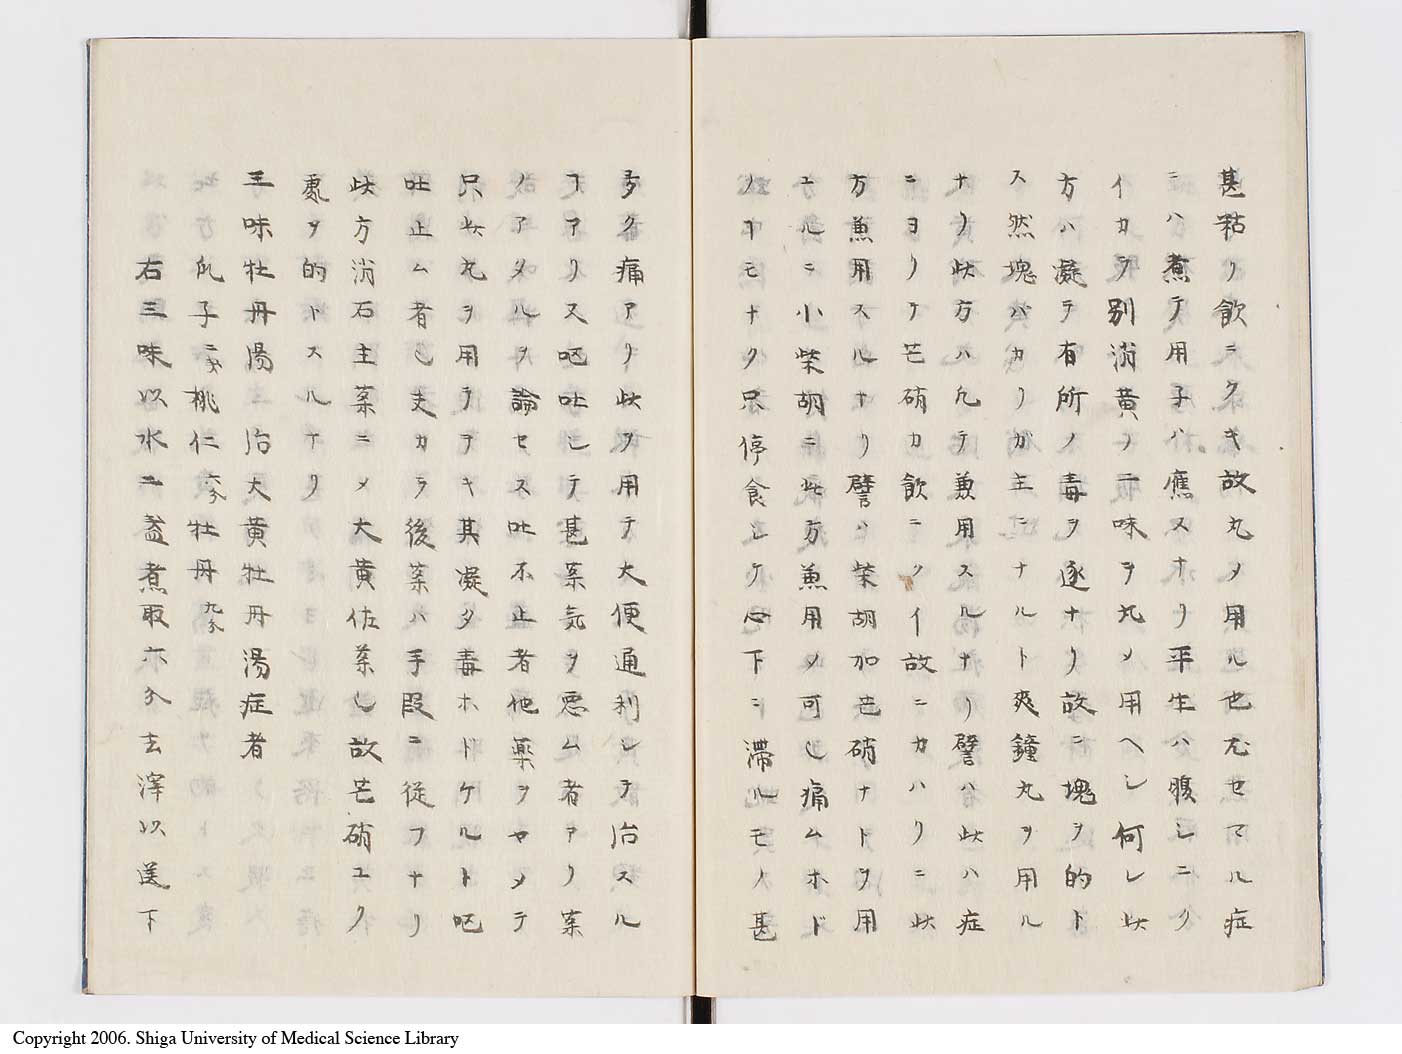 甚粘リ飲ミクキ故丸メ用ル也尤セマル症
ニハ煮テ用子ハ應スナリ平生ハ腹シニク
イカラ別消黄ノ二味ヲ丸メ用ヘシ何レ此
方ハ凝テ有所ノ毒ヲ逐ナリ故ニ塊ヲ的ト
ス然塊バカリガ主ニナルト爽鐘丸ヲ用ル
ナリ此方ハ凡テ兼用スルナリ譬ハ此ハ症
ニヨリケ芒硝カ飲ニクイ故ニカハリニ此
方兼用スルナリ譬ハ柴胡加芒硝ナトヲ用
ユルニ小柴胡ニ此方兼用メ可也痛ムホド
ノコモナク只停食シケ心下ニ滞ルモノ甚
多ク痛アリ此ヲ用テ大便通利シテ治スル
コアリ又嘔吐シテ甚薬気ヲ悪ム者アリ薬
ノアタルヲ論セス吐不止者他藥ヲヤメテ
只此丸ヲ用テヲキ其凝タ毒ホドケルト嘔
吐止ム者也夫カラ後薬ハ手段ニ従フナリ
此方消石主薬ニメ大黄佐薬也故芒硝ユク
処ヲ的トスルナリ
三味牡丹湯治大黄牡丹湯症者
瓜子二戔桃仁六分牡丹九分
右三味以水二盞煮取六分去滓以送下
Copyright 2006. Shiga University of Medical Science Library